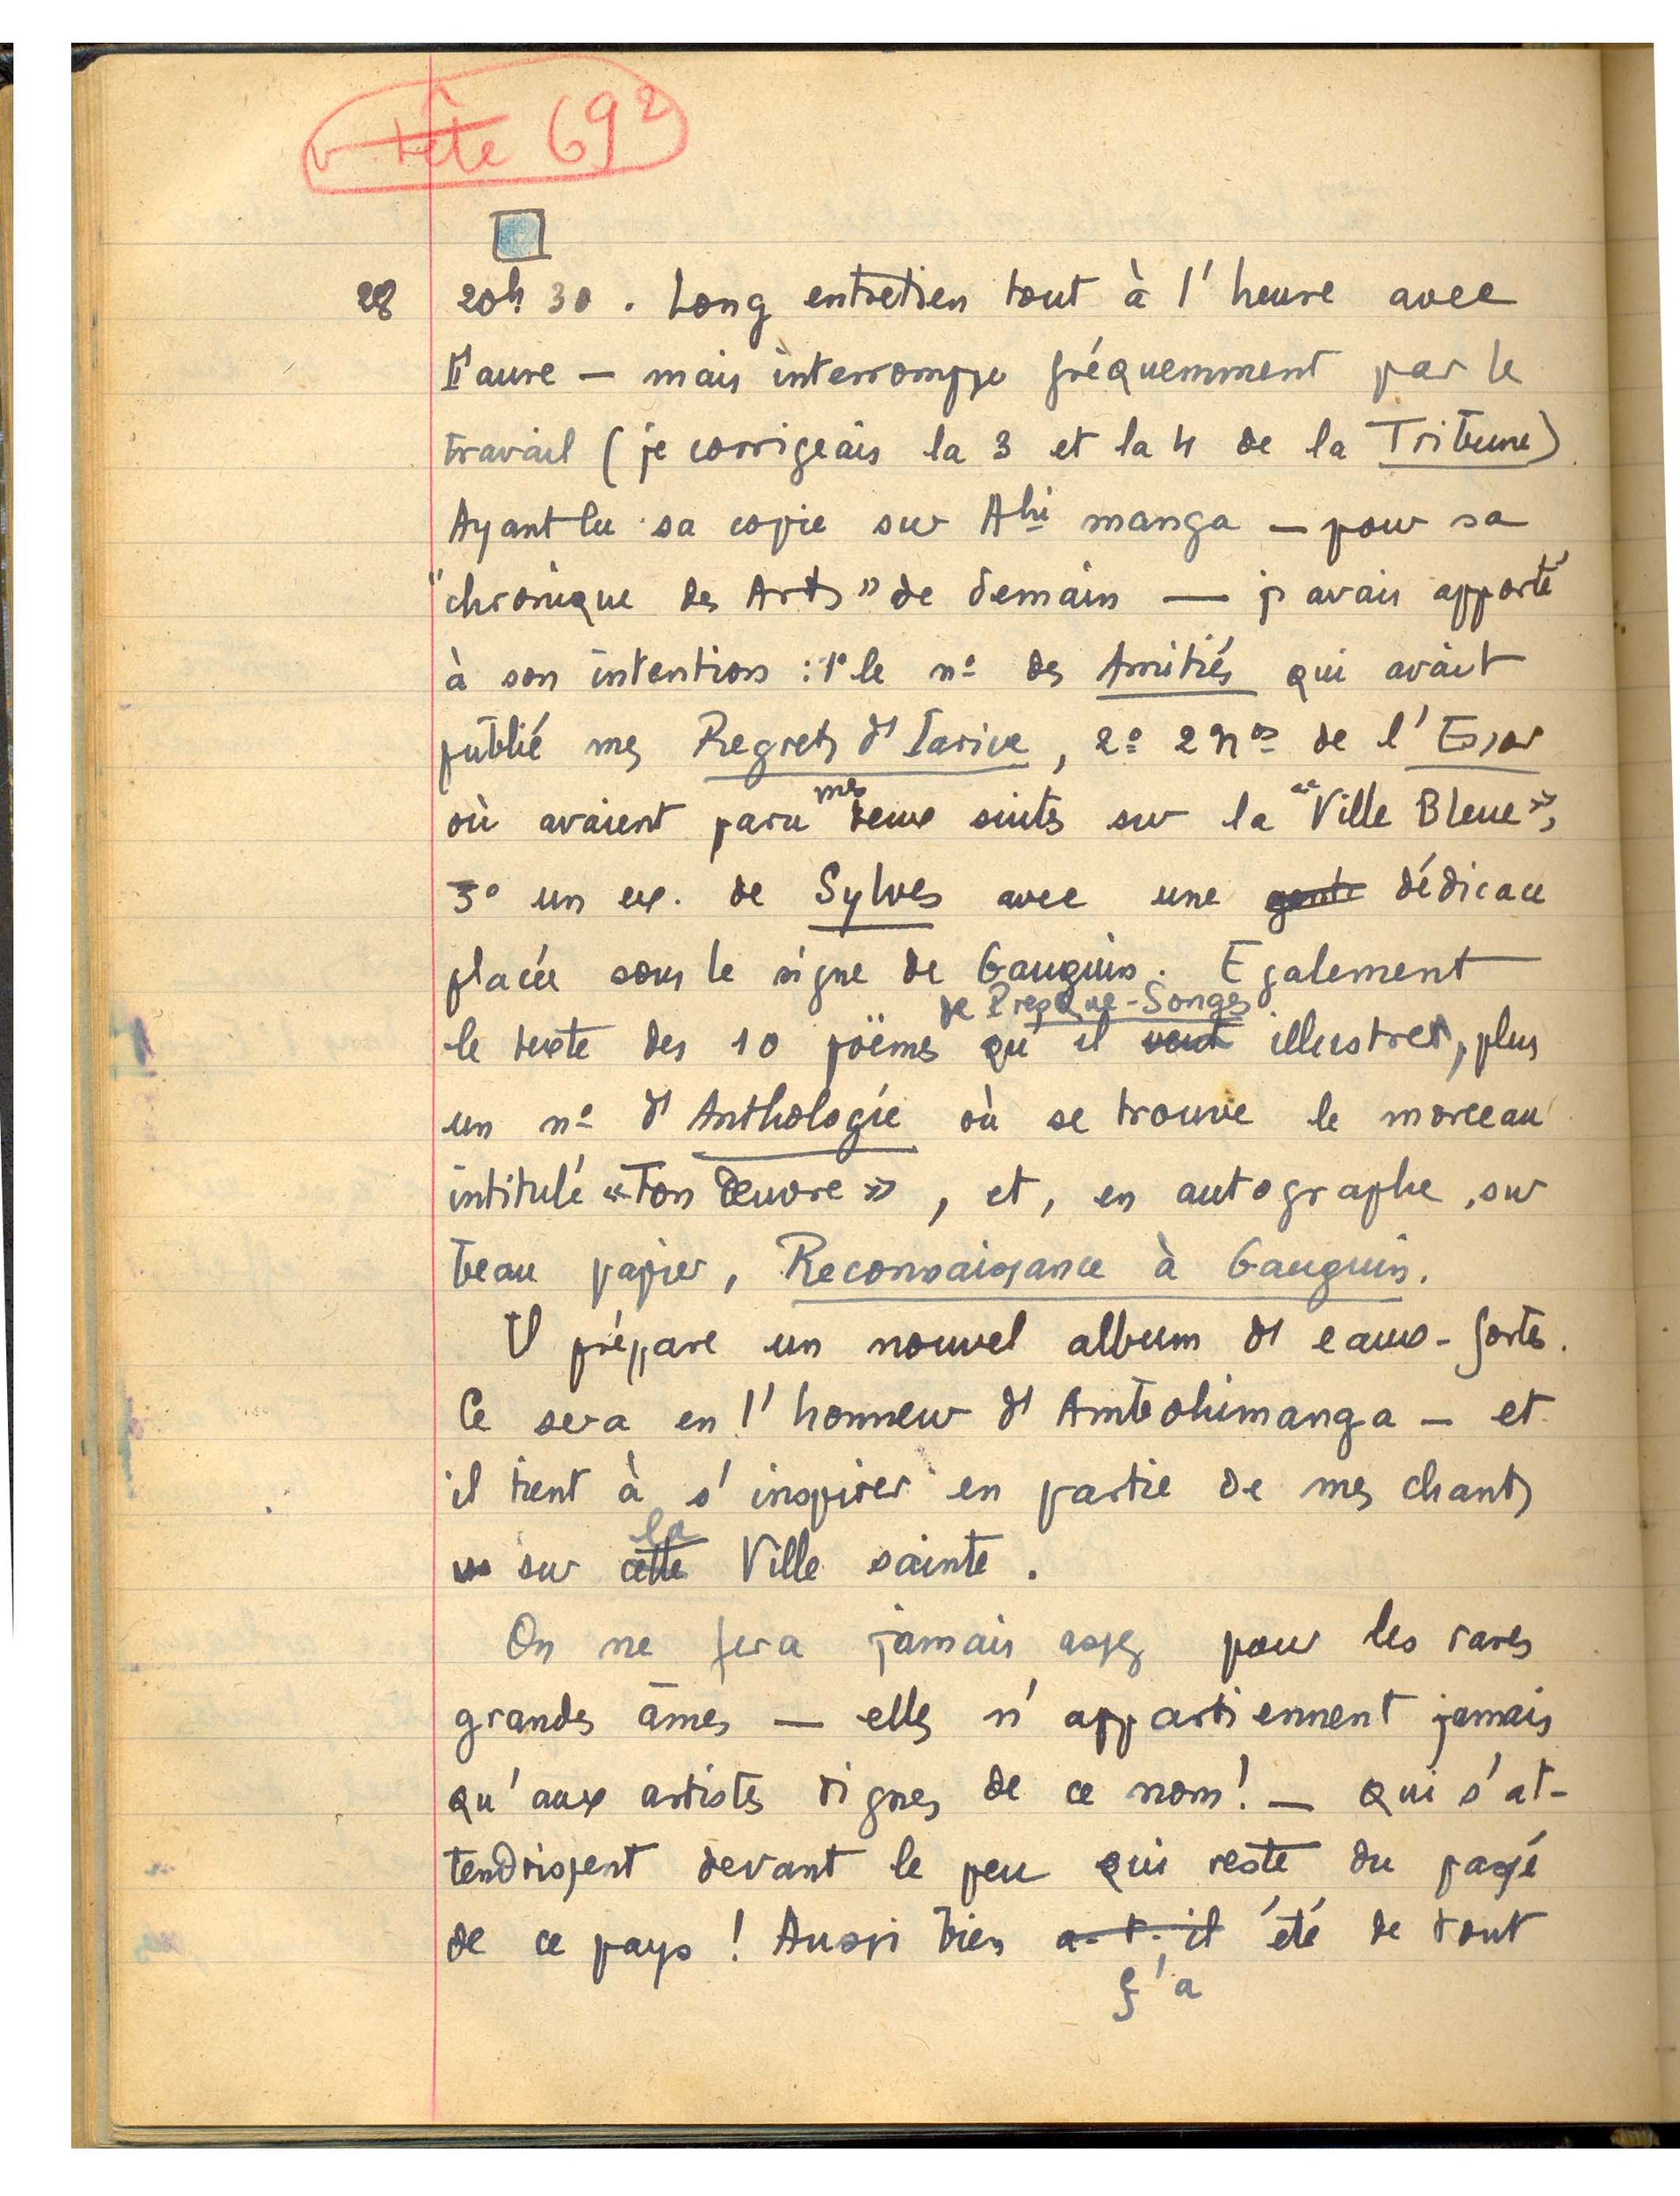 tête 692
28 20h 30. Long entretien tout à l'heure avec
Faure — mais interrompu fréquemment par le
travail (je corrigeais la 3 et la 4 de la Tribune)
Ayant lu sa copie sur Ahimanga — pour sa
"chronique des Arts" de demain — j'avais apporté
à son intention : 1° le n° des Amitiés qui avait
publié mes Regrets d'Iarive, 2° 2 nos de l'Essor
où avaient paru mes deux suites sur la "Ville Bleue",
3° un ex. de Sylves avec une dédicace
placée sous le signe de Gauguin. Egalement
de Presque-Songes
le texte des 10 poëmes qu'il veut illustrer, plus
un n° d'Anthologie où se trouve le morceau
intitulé «Ton Œuvre», et, en autographe, sur
beau papier, Reconnaissance à Gauguin.
Il prépare un nouvel album d'eaux-fortes.
Ce sera en l'honneur d'Ambohimanga — et
il tient à s'inspirer en partie de mes chants
la
sur cette Ville sainte.
On ne fera jamais assez pour les rares
grandes âmes — elles n'appartiennent jamais
qu'aux artistes dignes de ce nom! — qui s'at-
tendrissent devant le peu qui reste du passé
de ce pays ! Aussi bien a-t-il été de tout
ç'a